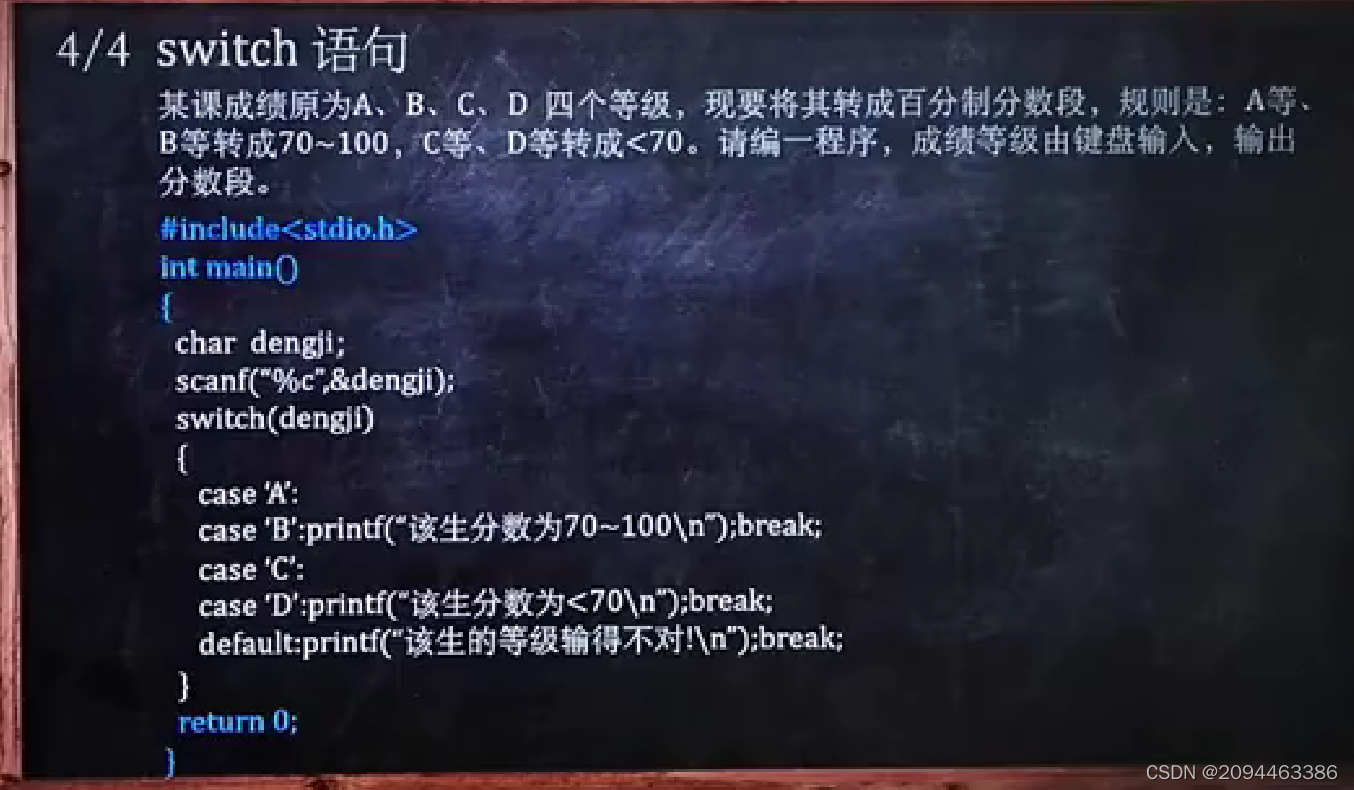 4/4 switch 语句
某课成绩原为A、B、C、D 四个等级，现要将其转成百分制分数段，规则是：A等、
B等转成70~100，C等、D等转成<70。请编一程序，成绩等级由键盘输入，输出
分数段。
#include<stdio.h>
int main()
{
char dengji;
scanf(“%c”,&dengji);
switch(dengji)
{
case ‘A’:
case ‘B’:printf(“该生分数为70~100\n”);break;
case ‘C’:
case ‘D’:printf(“该生分数为<70\n”);break;
default:printf(“该生的等级输得不对!\n”);break;
}
return 0;
}
CSDN @2094463386